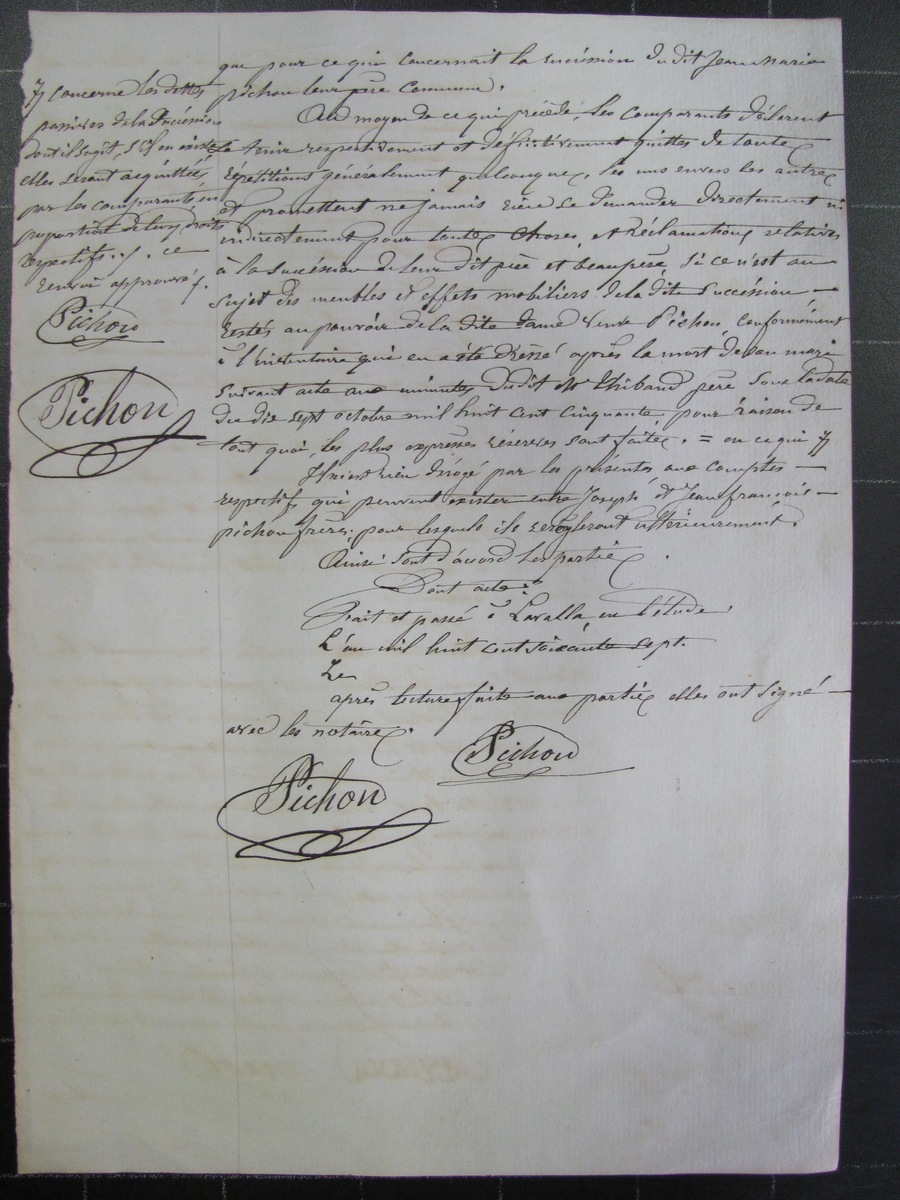 que pour ce qui concernait la succéssion du dit Jean Marie
pichon leur père commun.
Au moyen de ce qui précède, les comparants déclarent
se tenir respectivement et définitivement quittes de toutes
répétitions généralement quelconques, les uns envers les autres
et promettent ne jamais rien se demander directement ni
indirectement pour toutes choses, et réclamations relatives
à la succéssion de leur dit père et beaupère, si ce n'est au
sujet des meubles et effets mobiliers de la dite succéssion
restés au pouvoir de la dite dame veuve Pichon, conformément
à l'inventaire qui en a été dréssé après la mort de son mari
suivant acte aux minutes du dit Me Thibaud père sous la date
du dix sept octobre mil huit cent cinquante pour raison de
tout quoi, les plus expresses réserves sont faites. = en ce qui
Il n'est rien dérogé par les présentes aux comptes
respectifs qui peuvent exister entre Joseph et Jean françois
pichon frères, pour lesquels ils se régleront ultérieurement.
Ainsi sont d'accord les parties.
Dont acte.
Fait et passé à Lavalla, en l'étude.
L'an mil huit cent soixante sept.
Le
après lecture faite aux parties elles ont signé
avec les notaires.
Pichon
Pichon
concerne les dettes
passives de la succéssion
dont il s'agit, s'il en existe
elles seront acquittées
par les comparants en
proportion de leurs droits
respectifs. ce
renvoi approuvé.
Pichon
Pichon